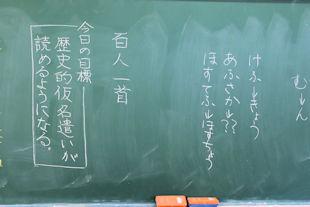 むしん
けふ→きょう
あふさか→??
ほすてふ→ほすちょう
百人一首
今日の目標
歴史的仮名遣いが
読めるようになる。